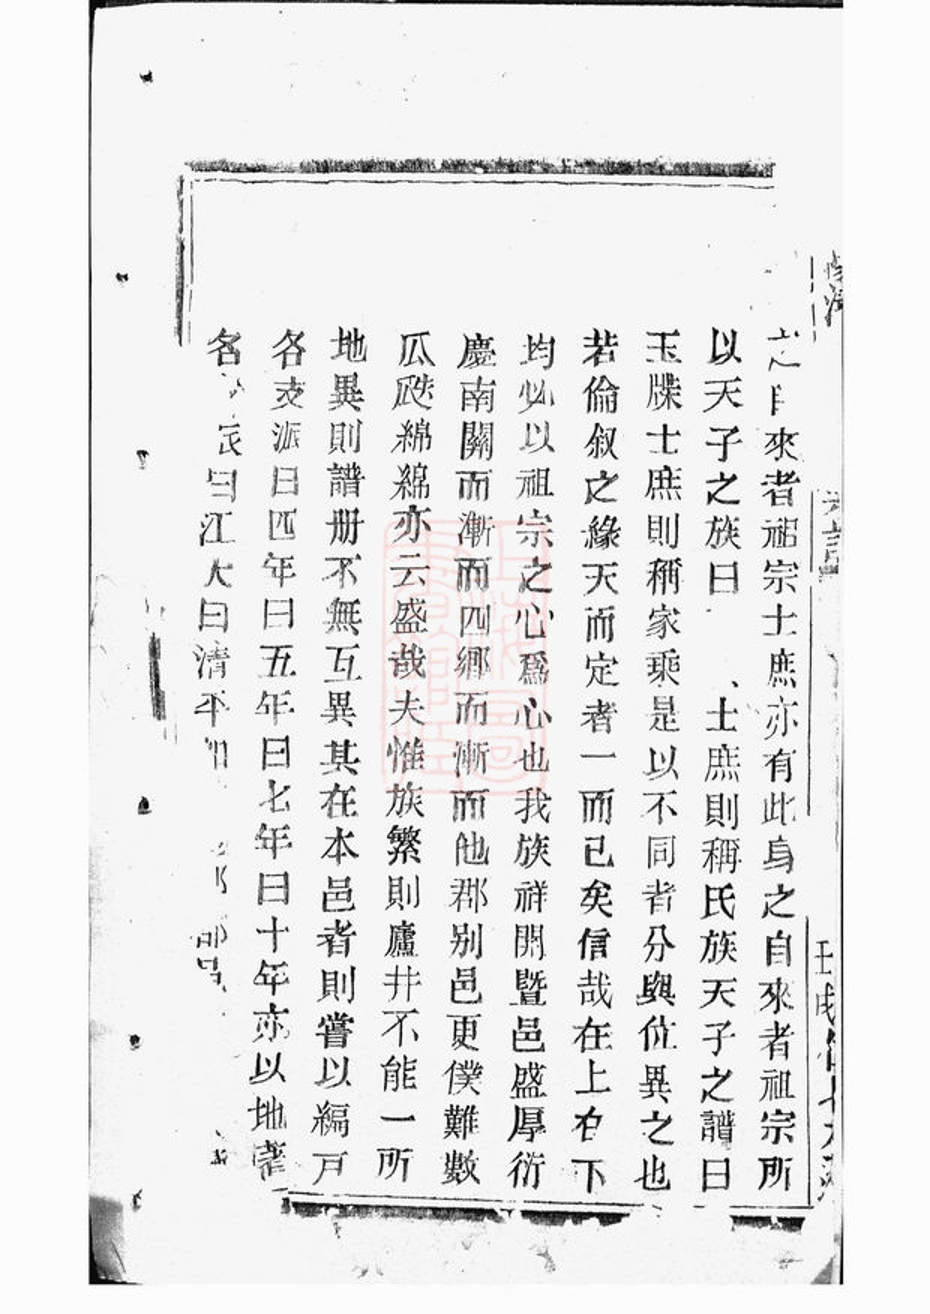 之自來者祖宗士庶亦有此身之自來者祖宗所
以天子之族曰士庶則稱氏族天子之譜曰
玉牒士庶則稱家乘是以不同者分與位異之也
若倫叙之緣天而定者一而已矣信哉在上在下
均必以祖宗之心爲心也我族祥開暨邑盛厚衍
慶南關而漸而四鄉而漸而他郡别邑更僕難數
瓜瓞綿綿亦云盛哉夫惟族繁則廬井不能一所
地異則譜册不無互異其在本邑者則嘗以編戸
各支派曰四年曰五年曰七年曰十年亦以地著
名曰江大曰清平